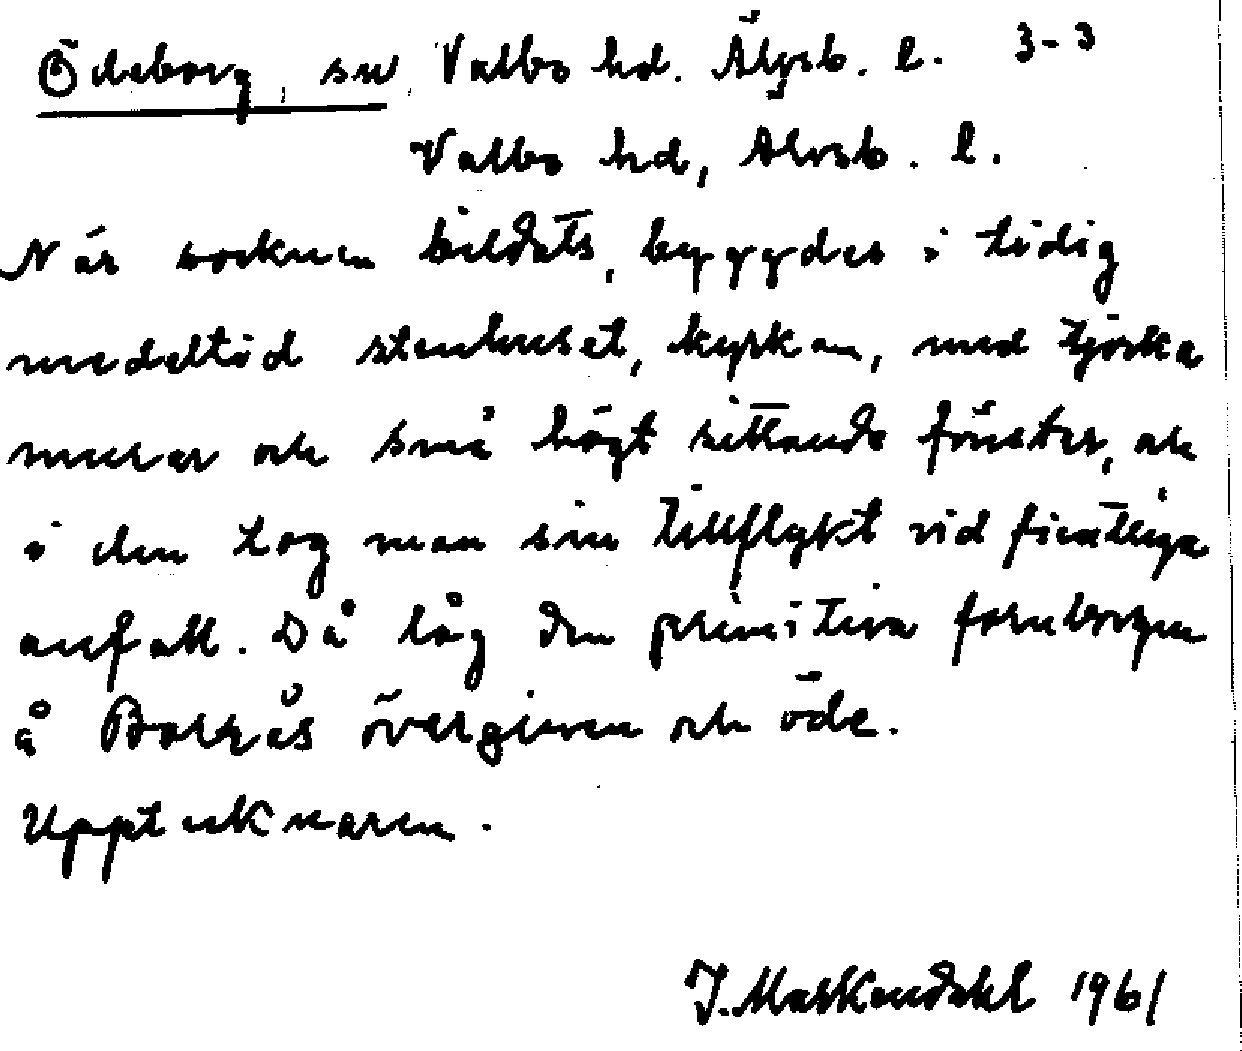 Ödeborg, sn Valbo hd. Älvsb. l. 3-3
Valbo hd, Älvsb. l.
När socknen bildats, byggdes i tidig
medeltid stenhuset, kyrkan, med tjocka
murar och små högt sittande fönster, och
i den tog man sin tillflykt vid fientliga
anfall. Då låg den primitiva fornborgen
å Borrås övergiven och öde.
Upptecknaren.
J. Markendahl 1961